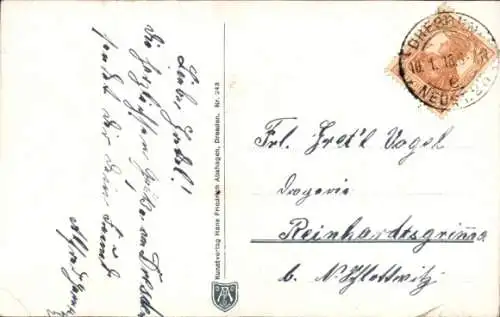 Liebes Gretel!
die herzlichsten Grüße an Dresden
sendet dir dein Freund
Alfred
Kunstverlag Hans Friedrich Abshagen, Dresden. Nr. 243
DRESDEN
10.1.18
NEUST.
Frl. Gret'l Vogel
Drogerie
Reinhardtsgrimma
b. N. Schlottwitz